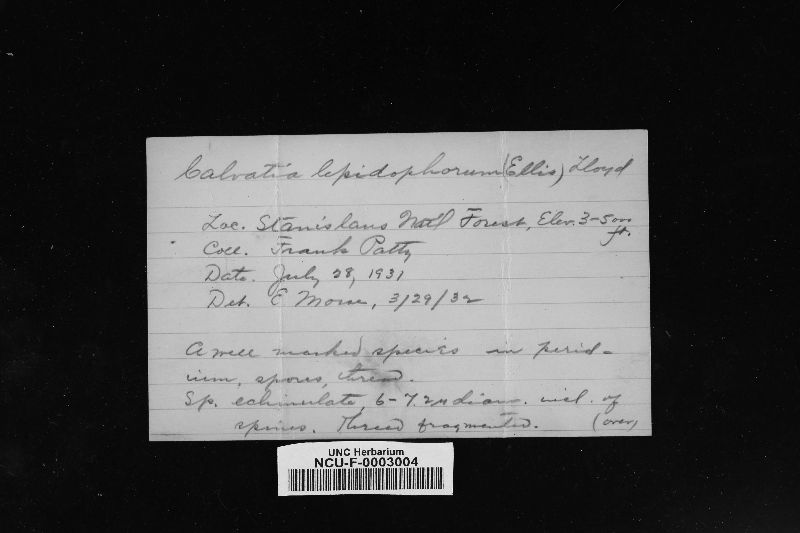 Calvatia lepidophorum (Ellis) Lloyd
Loc. Stanislaus Nat'l Forest, Elev. 3-5000 ft.
Coll. Frank Patty
Date. July 28, 1931
Det. E Morse, 3/29/32
A well marked species in perid-
ium, spores, thread.
Sp. echinulate, 6-7.2µ diam. incl. of
spines. Thread fragmented. (over)
UNC Herbarium
NCU-F-0003004